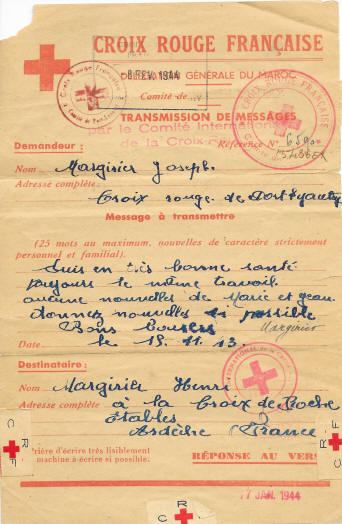 CROIX ROUGE FRANÇAISE
8 FEV. 1944
DÉLÉGATION GÉNÉRALE DU MAROC
Comité de
TRANSMISSION DE MESSAGES
par le Comité International
de la Croix-Rouge
CROIX ROUGE FRANÇAISE
Référence N°
Demandeur :
Nom Marginier Joseph.
Adresse complète
Croix rouge de Port Lyautey
Message à transmettre
(25 mots au maximum, nouvelles de caractère strictement
personnel et familial).
Suis en très bonne santé
toujours le même travail
aucune nouvelles de Marie et Jean
donnez nouvelles si possible
Bons baisers Marginier
Date le 15.11.43.
Destinataire :
Nom Marginier Henri
Adresse complète à la Croix de Roche
Etables
Ardèche (France)
Prière d'écrire très lisiblement
machine à écrire si possible.
RÉPONSE AU VERSO
17 JAN. 1944
C R F
C R F
C R